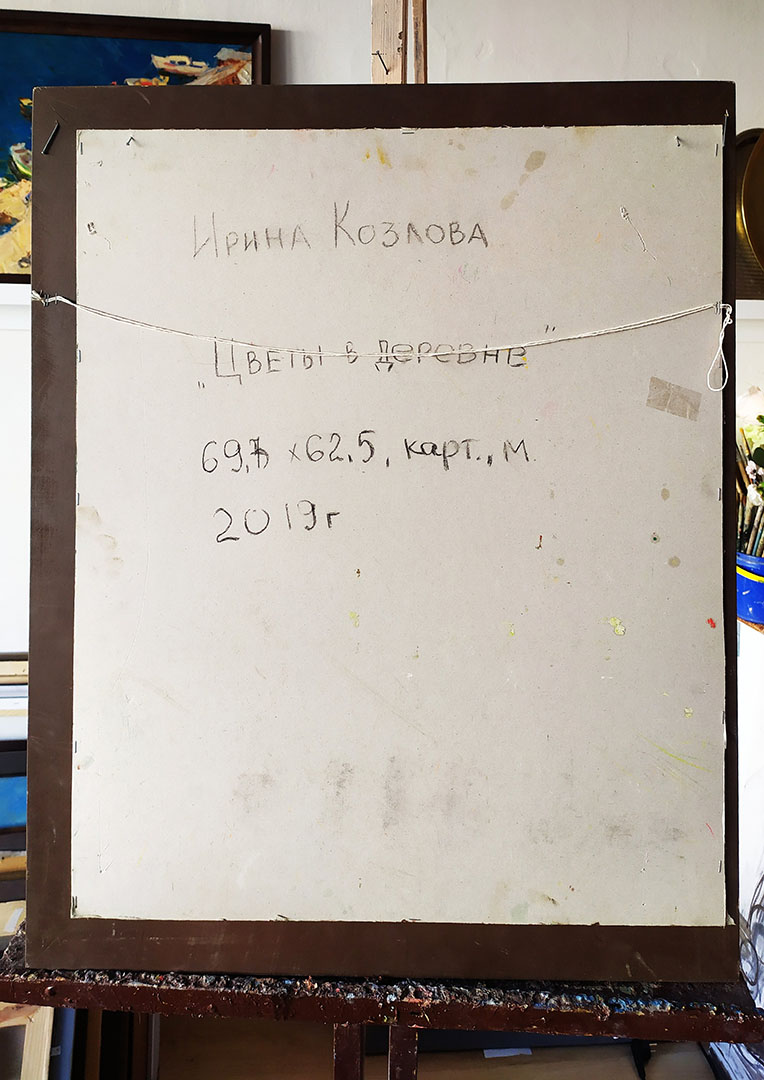 Ирина Козлова
„Цветы в деревне"
69,5 х 62.5, карт., м.
2019г